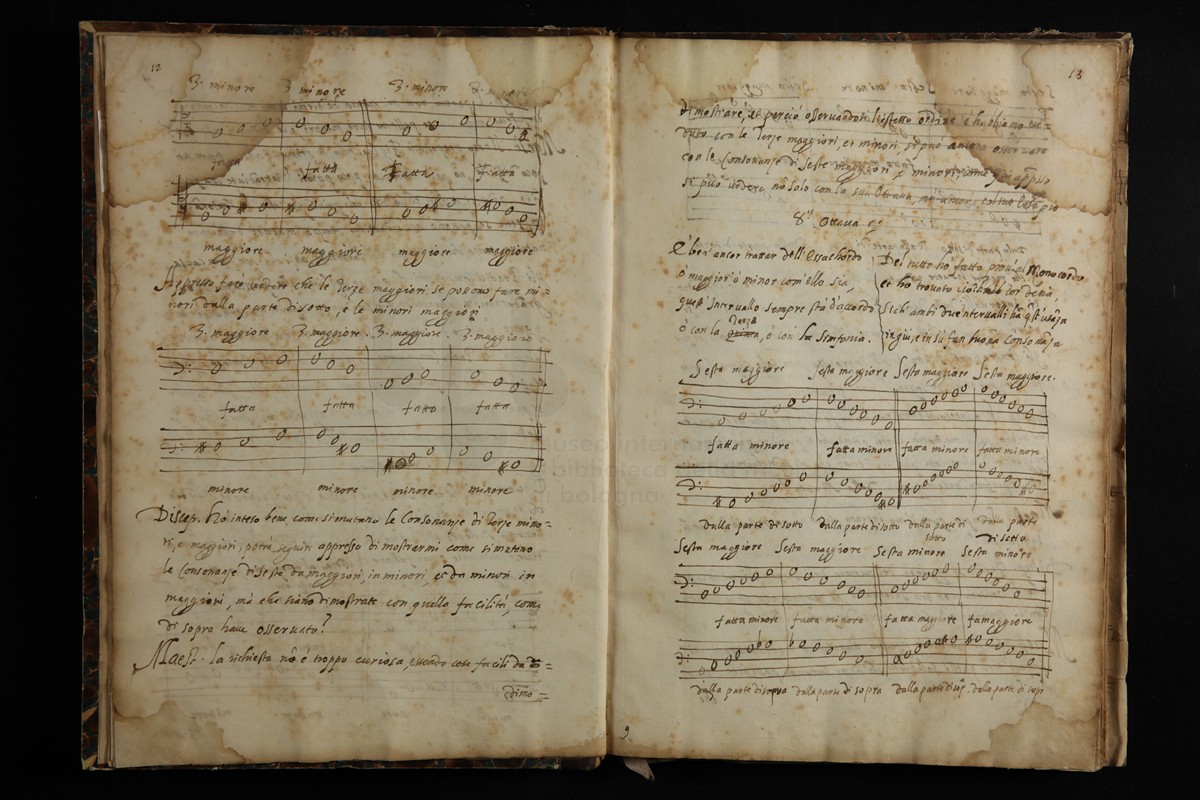 12
3. minore 3. minore 3. minore 3. minore
fatta fatta fatta fatta
maggiore maggiore maggiore maggiore
Appresso fate vedere che le Terze maggiori se possono fare mi=
nori dalla parte di sotto, e le minori maggiori
3. maggiore 3. maggiore 3. maggiore 3. maggiore
fatta fatta fatta fatta
minore minore minore minore
Discep. hò inteso bene come si mutano le Consonanze di Terze mino=
ri, e maggiori, potra seguir appresso di mostrarmi come si mutano
le Consonanze di Seste da maggiori, in minori, et da minori in
maggiori, mà che siano dimostrate con quella facilità, come
di sopra have osservato?
Maes. la richiesta nõ è troppo curiosa, essendo cose facili da
dimo=
13
dimostrare, et perciò osservandosi l'istesso ordine c'habbiamo
con le Terze maggiori, et minori, si può ancora osservare
con le Consonanze di Seste maggiori e minori come
si può vedere, no solo con la sua Ottava, mà ancora col suo
8ª. Ottava
E' ben ancor trattar dell'Essachordo
ò maggior ò minor com'ello sia,
quest'Intervallo sempre stà d'accordo
ò con la Terza, ò con la Sinfonia.
Del tutto ho fatto prova al Monocordo
et hò trovato
ingiù, e in sù fan buona consonanza
Sesta maggiore Sesta maggiore Sesta maggiore Sesta maggiore.
fatta minore fatta minore fatta minore fatta minore
dalla parte di sotto dalla parte di sotto dalla parte di sotto dalla parte di sotto
Sesta maggiore Sesta maggiore Sesta minore Sesta minore
fatta minore fatta minore fatta maggiore famaggiore
dalla parte di sopra dalla parte di sopra dalla parte di sop. dalla parte di sopr
9
museo internazionale
biblioteca della musica
di bologna